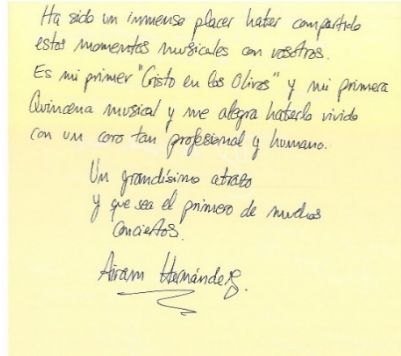 Ha sido un inmenso placer haber compartido
estos momentos musicales con vosotros.
Es mi primer "Cristo en los Olivos" y mi primera
Quincena musical y me alegra haberlo vivido
con un coro tan profesional y humano.
Un grandísimo abrazo
y que sea el primero de muchos
conciertos.
Airam Hernández.